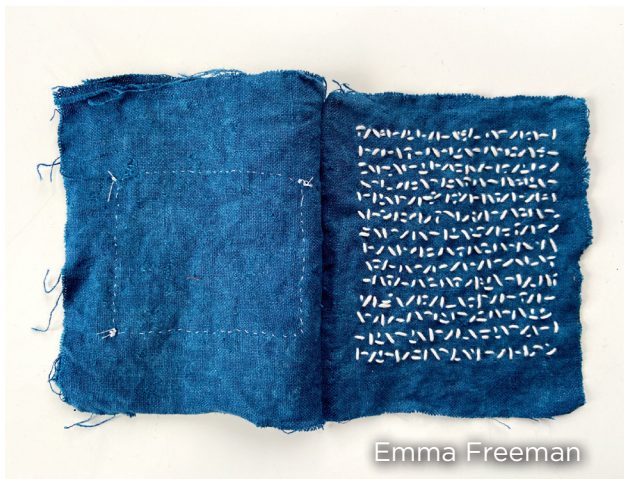 Emma Freeman